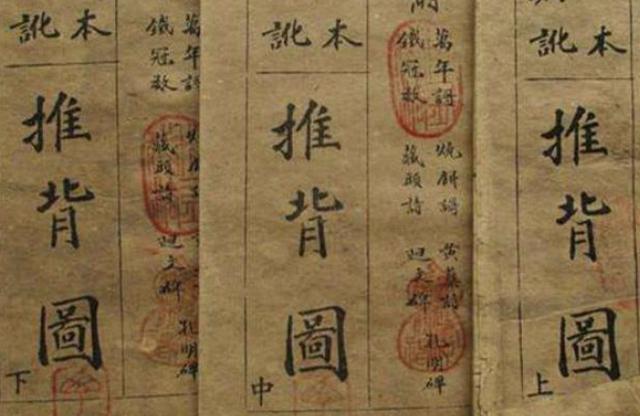 本訛
推背圖
上
萬年謌 燒餅謌 黃蘗詩 孔明碑
鐵冠數 藏頭詩 迴文碑
本訛
推背圖
中
萬年謌 孔明碑
鐵冠數 藏頭詩 迴文碑
本訛
推背圖
下